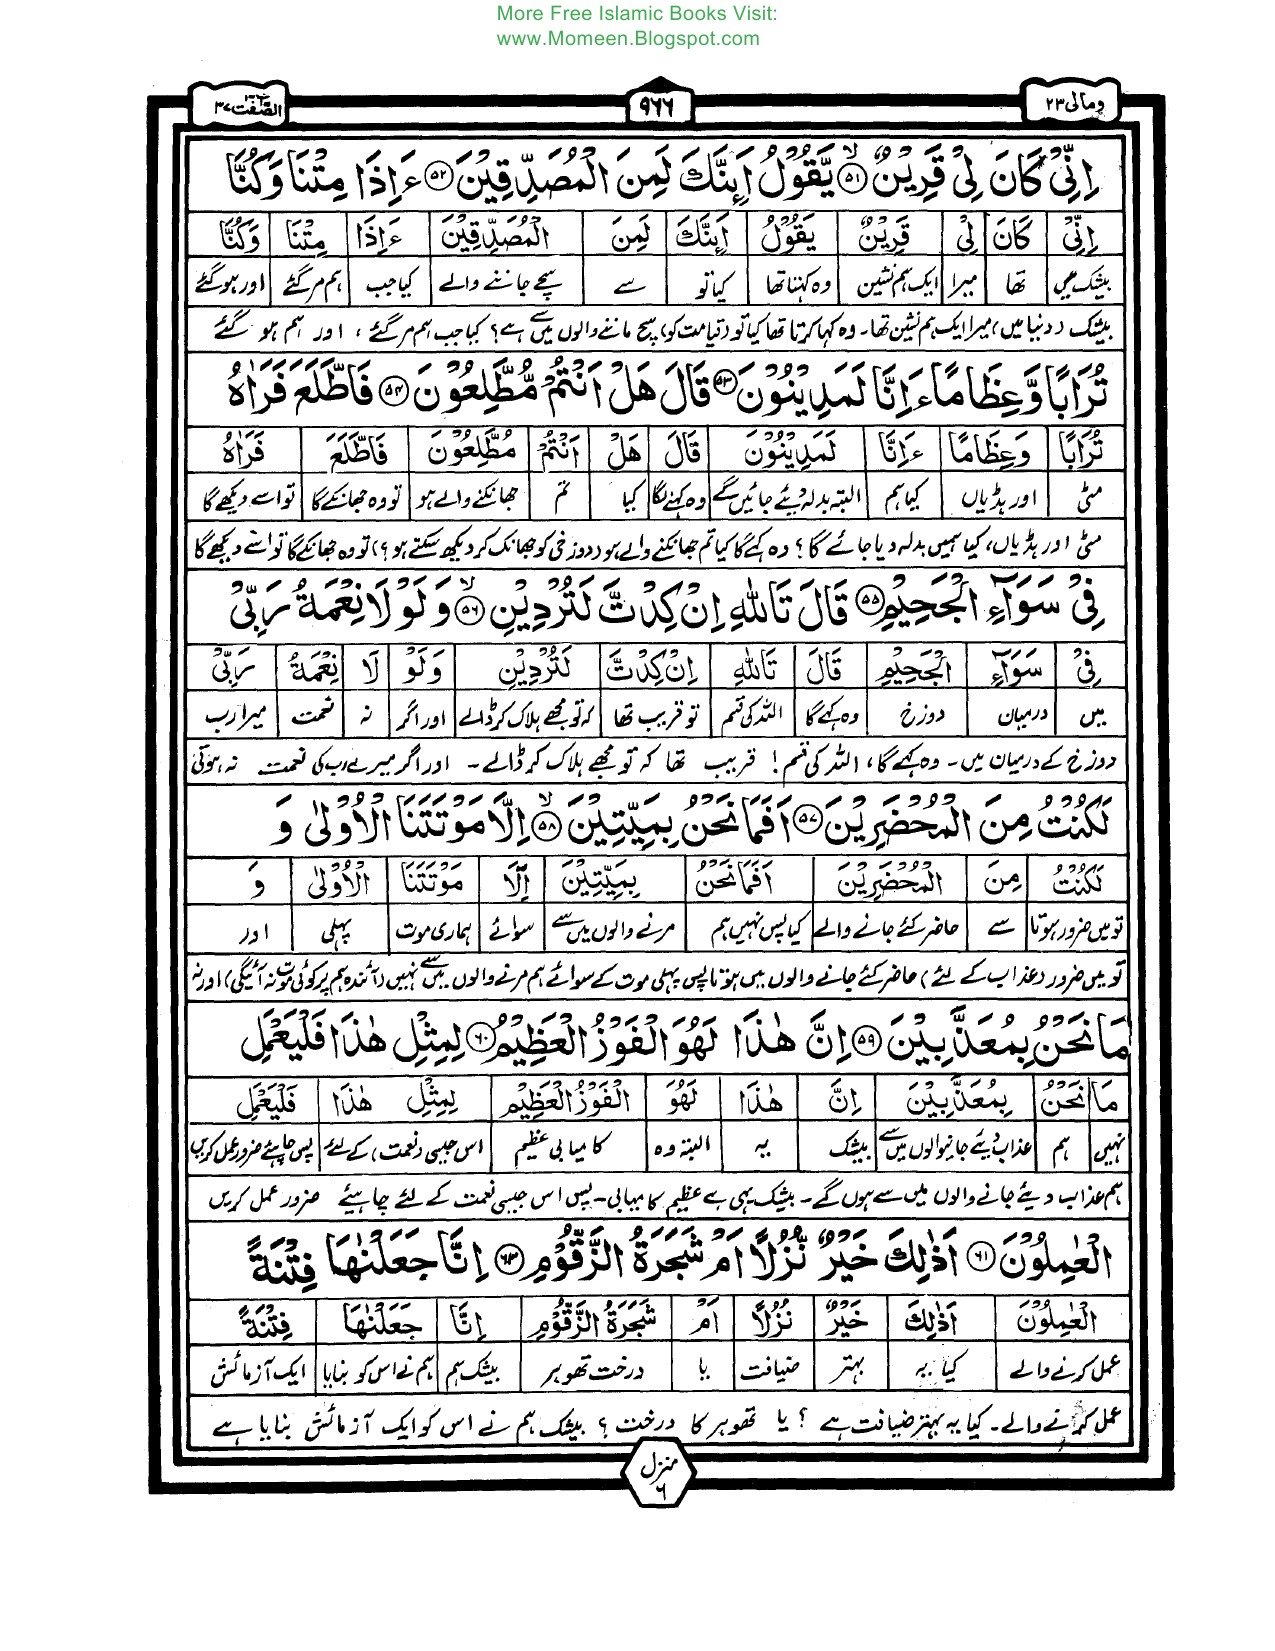 More Free Islamic Books Visit:
www.Momeen.Blogspot.com
ومالی ۲۳
۹۶۶
الصّٰفّٰت ۳۷
اِنِّیْ كَانَ لِیْ قَرِیْنٌ ۵۱ یَّقُوْلُ اَىِٕنَّكَ لَمِنَ الْمُصَدِّقِیْنَ ۵۲ ءَاِذَا مِتْنَا وَكُنَّا
اِنِّیْ كَانَ لِیْ قَرِیْنٌ یَقُوْلُ اَىِٕنَّكَ لَمِنَ الْمُصَدِّقِیْنَ ءَاِذَا مِتْنَا وَكُنَّا
بیشک میں تھا میرا ایک ہم نشین وہ کہتا تھا کیا تو سے سچے جاننے والے کیا جب ہم مر گئے اور ہو گئے
بیشک (دنیا میں) میرا ایک ہم نشین تھا۔ وہ کہا کرتا تھا کیا تو (قیامت کو) سچ ماننے والوں میں سے ہے؟ کیا جب ہم مر گئے، اور ہم ہو گئے
تُرَابًا وَّعِظَامًا ءَاِنَّا لَمَدِیْنُوْنَ ۵۳ قَالَ هَلْ اَنْتُمْ مُّطَّلِعُوْنَ ۵۴ فَاطَّلَعَ فَرَاٰهُ
تُرَابًا وَعِظَامًا ءَاِنَّا لَمَدِیْنُوْنَ قَالَ هَلْ اَنْتُمْ مُطَّلِعُوْنَ فَاطَّلَعَ فَرَاٰهُ
مٹی اور ہڈیاں کیا ہم البتہ بدلہ دیئے جائیں گے وہ کہنے لگا کیا تم جھانکنے والے ہو تو وہ جھانکے گا تو اسے دیکھے گا
مٹی اور ہڈیاں، کیا ہمیں بدلہ دیا جائے گا؟ وہ کہے گا کیا تم جھانکنے والے ہو (دوزخی کو جھانک کر دیکھ سکتے ہو؟) تو وہ جھانکے گا تو اسے دیکھے گا
فِیْ سَوَآءِ الْجَحِیْمِ ۵۵ قَالَ تَاللّٰهِ اِنْ كِدْتَّ لَتُرْدِیْنِ ۵۶ وَلَوْ لَا نِعْمَةُ رَبِّیْ
فِیْ سَوَآءِ الْجَحِیْمِ قَالَ تَاللّٰهِ اِنْ كِدْتَّ لَتُرْدِیْنِ وَلَوْ لَا نِعْمَةُ رَبِّیْ
میں درمیان دوزخ وہ کہے گا اللہ کی قسم تو قریب تھا کہ تو مجھے ہلاک کر ڈالے اور اگر نہ نعمت میرا رب
دوزخ کے درمیان میں۔ وہ کہے گا، اللہ کی قسم! قریب تھا کہ تو مجھے ہلاک کر ڈالے۔ اور اگر میرے رب کی نعمت نہ ہوتی
لَكُنْتُ مِنَ الْمُحْضَرِیْنَ ۵۷ اَفَمَا نَحْنُ بِمَیِّتِیْنَ ۵۸ اِلَّا مَوْتَتَنَا الْاُوْلٰی وَ
لَكُنْتُ مِنَ الْمُحْضَرِیْنَ اَفَمَا نَحْنُ بِمَیِّتِیْنَ اِلَّا مَوْتَتَنَا الْاُوْلٰی وَ
تو میں ضرور ہوتا سے حاضر کئے جانے والے کیا پس نہیں ہم مرنے والوں میں سے سوائے ہماری موت پہلی اور
تو میں ضرور (عذاب کے لئے) حاضر کئے جانے والوں میں ہوتا پس پہلی موت کے سوائے ہم مرنے والوں میں سے نہیں (آئندہ ہم پر کوئی موت نہ آئیگی) اور نہ
مَا نَحْنُ بِمُعَذَّبِیْنَ ۵۹ اِنَّ هٰذَا لَهُوَ الْفَوْزُ الْعَظِیْمُ ۶۰ لِمِثْلِ هٰذَا فَلْیَعْمَلِ
مَا نَحْنُ بِمُعَذَّبِیْنَ اِنَّ هٰذَا لَهُوَ الْفَوْزُ الْعَظِیْمُ لِمِثْلِ هٰذَا فَلْیَعْمَلِ
نہیں ہم عذاب دیئے جانیوالوں میں سے بیشک یہ البتہ وہ کامیابی عظیم اس جیسی (نعمت) کے لئے پس چاہئے ضرور عمل کریں
ہم عذاب دیئے جانے والوں میں سے ہوں گے۔ بیشک یہی ہے عظیم کامیابی۔ پس اس جیسی نعمت کے لئے چاہیئے ضرور عمل کریں
الْعٰمِلُوْنَ ۶۱ اَذٰلِكَ خَیْرٌ نُّزُلًا اَمْ شَجَرَةُ الزَّقُّوْمِ ۶۲ اِنَّا جَعَلْنٰهَا فِتْنَةً
الْعٰمِلُوْنَ اَذٰلِكَ خَیْرٌ نُزُلًا اَمْ شَجَرَةُ الزَّقُّوْمِ اِنَّا جَعَلْنٰهَا فِتْنَةً
عمل کرنے والے کیا یہ بہتر ضیافت یا درخت تھوہر بیشک ہم ہم نے اس کو بنایا ایک آزمائش
عمل کرنے والے۔ کیا یہ بہتر ضیافت ہے؟ یا تھوہر کا درخت؟ بیشک ہم نے اس کو ایک آزمائش بنایا ہے
منزل ۶